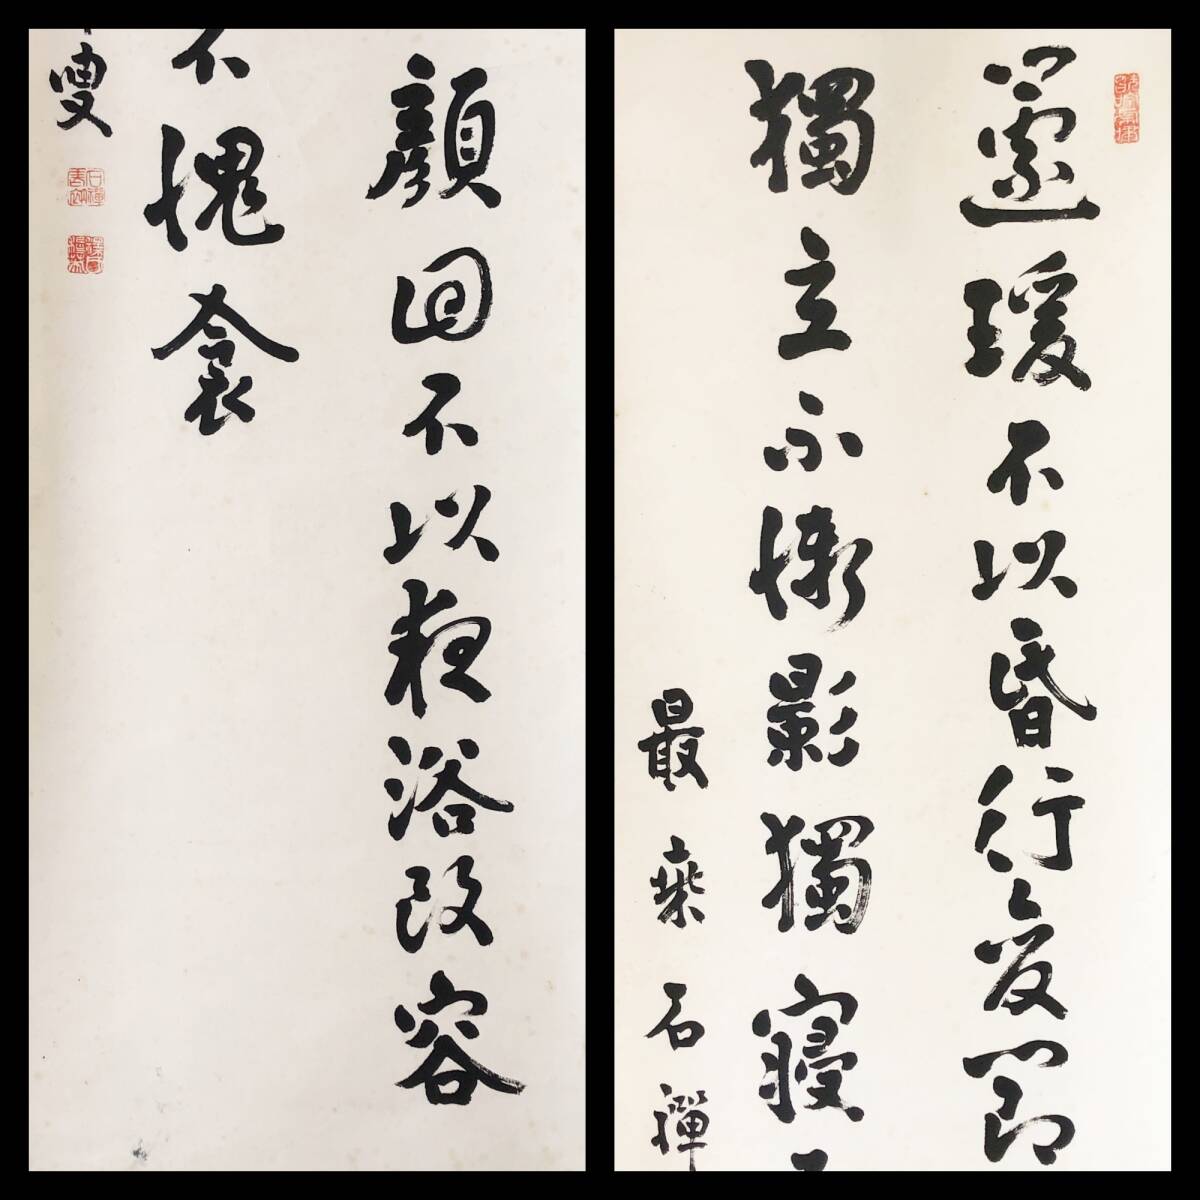 蘧瑗不以昏行變節
獨立不慚影獨寢
最乗石禪
顏回不以夜浴改容
不愧衾
叟